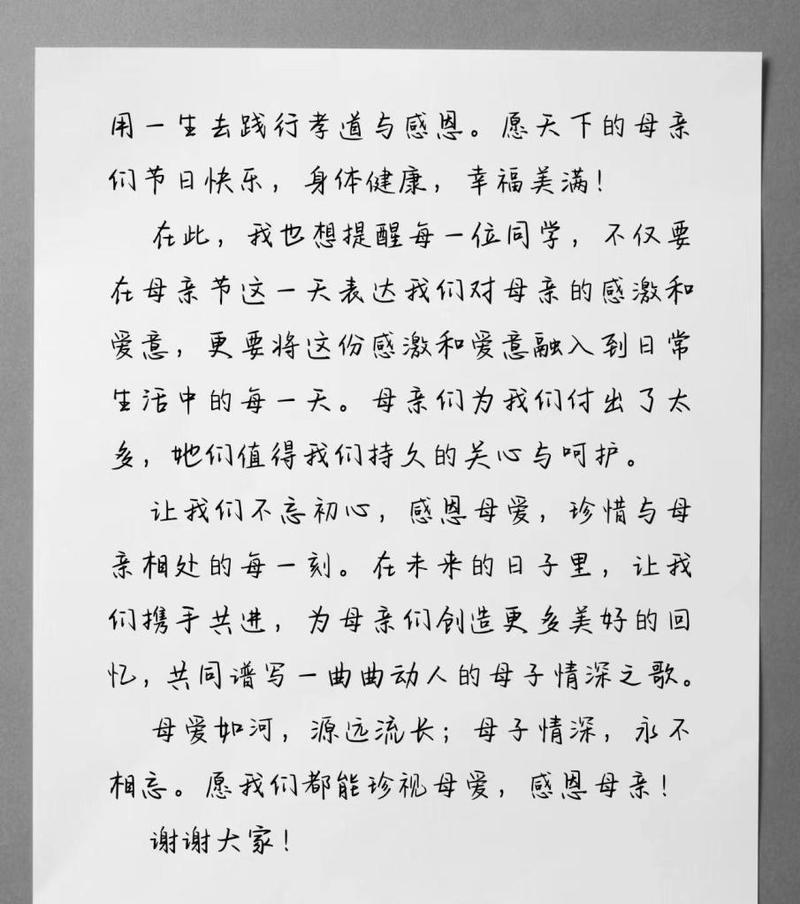 用一生去践行孝道与感恩。愿天下的母亲
们节日快乐，身体健康，幸福美满！
在此，我也想提醒每一位同学，不仅要
在母亲节这一天表达我们对母亲的感激和
爱意，更要将这份感激和爱意融入到日常
生活中的每一天。母亲们为我们付出了太
多，她们值得我们持久的关心与呵护。
让我们不忘初心，感恩母爱，珍惜与母
亲相处的每一刻。在未来的日子里，让我
们携手共进，为母亲们创造更多美好的回
忆，共同谱写一曲曲动人的母子情深之歌。
母爱如河，源远流长；母子情深，永不
相忘。愿我们都能珍视母爱，感恩母亲！
谢谢大家！